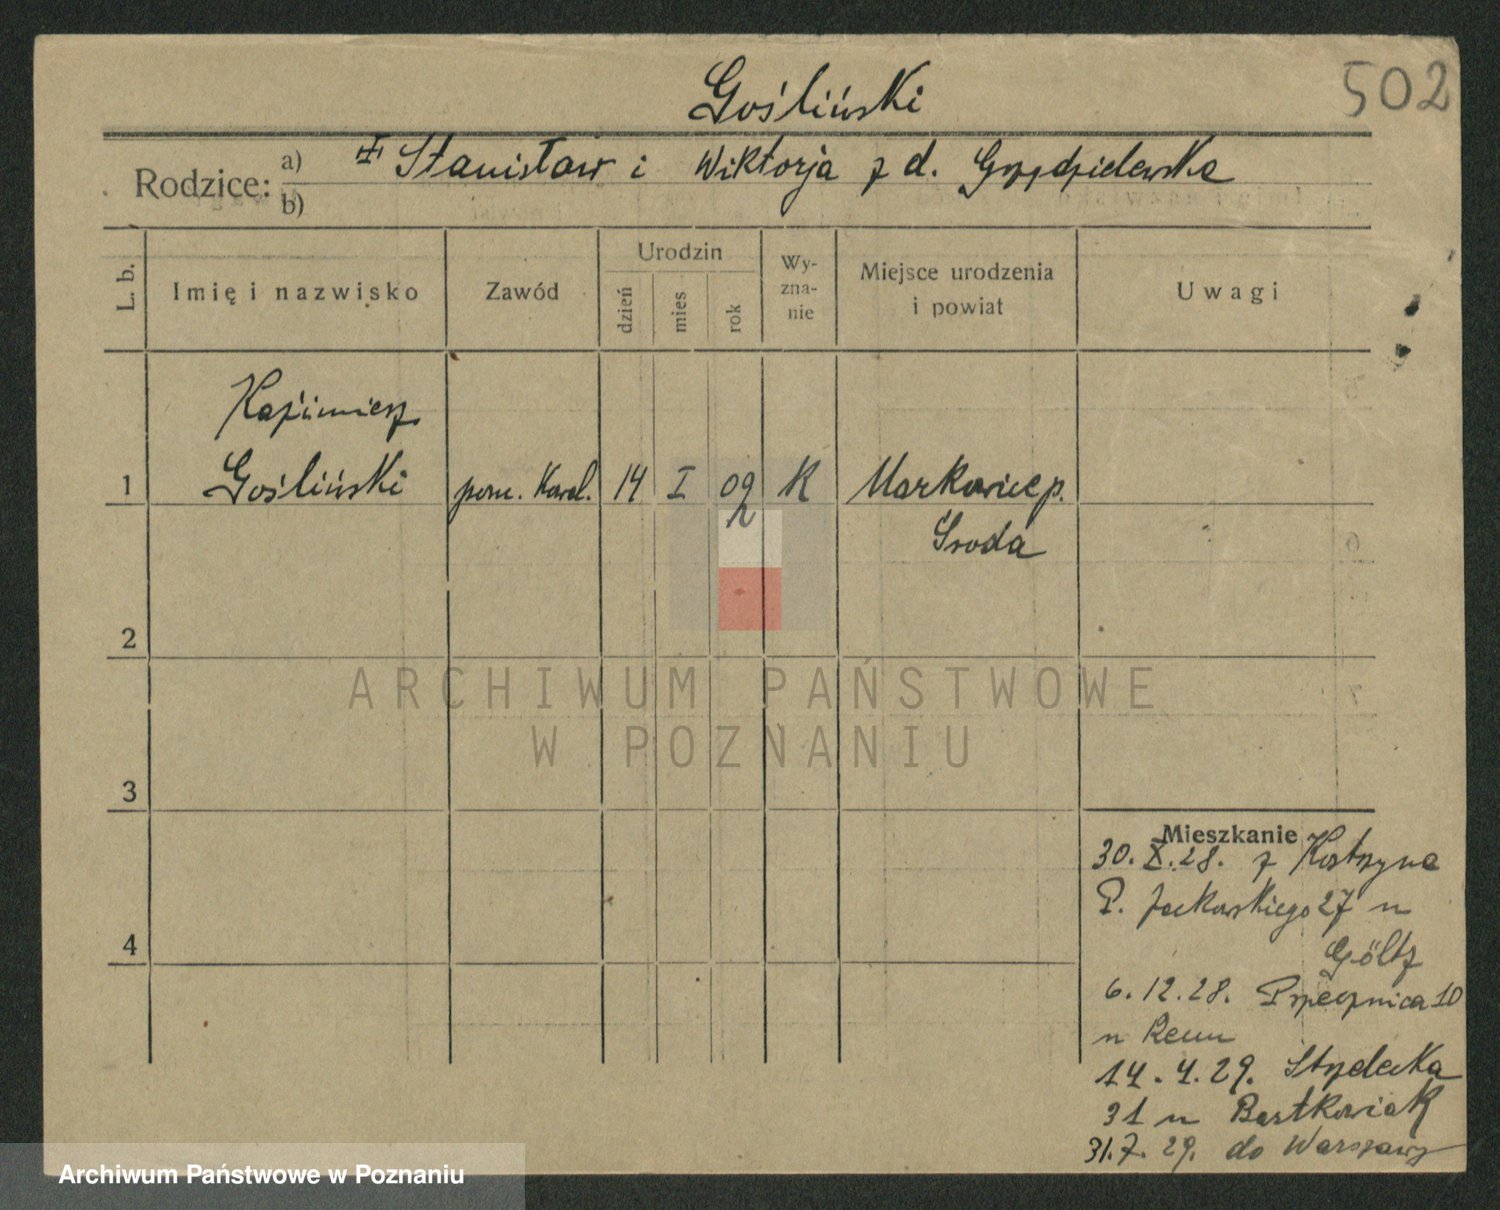 502
Gośliński
Rodzice: a) Stanisław i Wiktorja z d. Grzędzielewska
b)
L. b. Imię i nazwisko Zawód Urodzin dzień mies rok Wyznanie Miejsce urodzenia i powiat Uwagi
Kaźimierz
1 Gośliński pom. Kowal. 14 I 09 K Markowice p.
Środa
2
ARCHIWUM PAŃSTWOWE
W POZNANIU
3
Mieszkanie
30. X. 28. z Kostrzyna
P. Jackowskiego 27 u
Göltz
6. 12. 28. Przecznica 10
u
14. 4. 29. Strzelecka
4
31 u Bartkowiak
31. 7. 29. do Warszawy
Archiwum Państwowe w Poznaniu